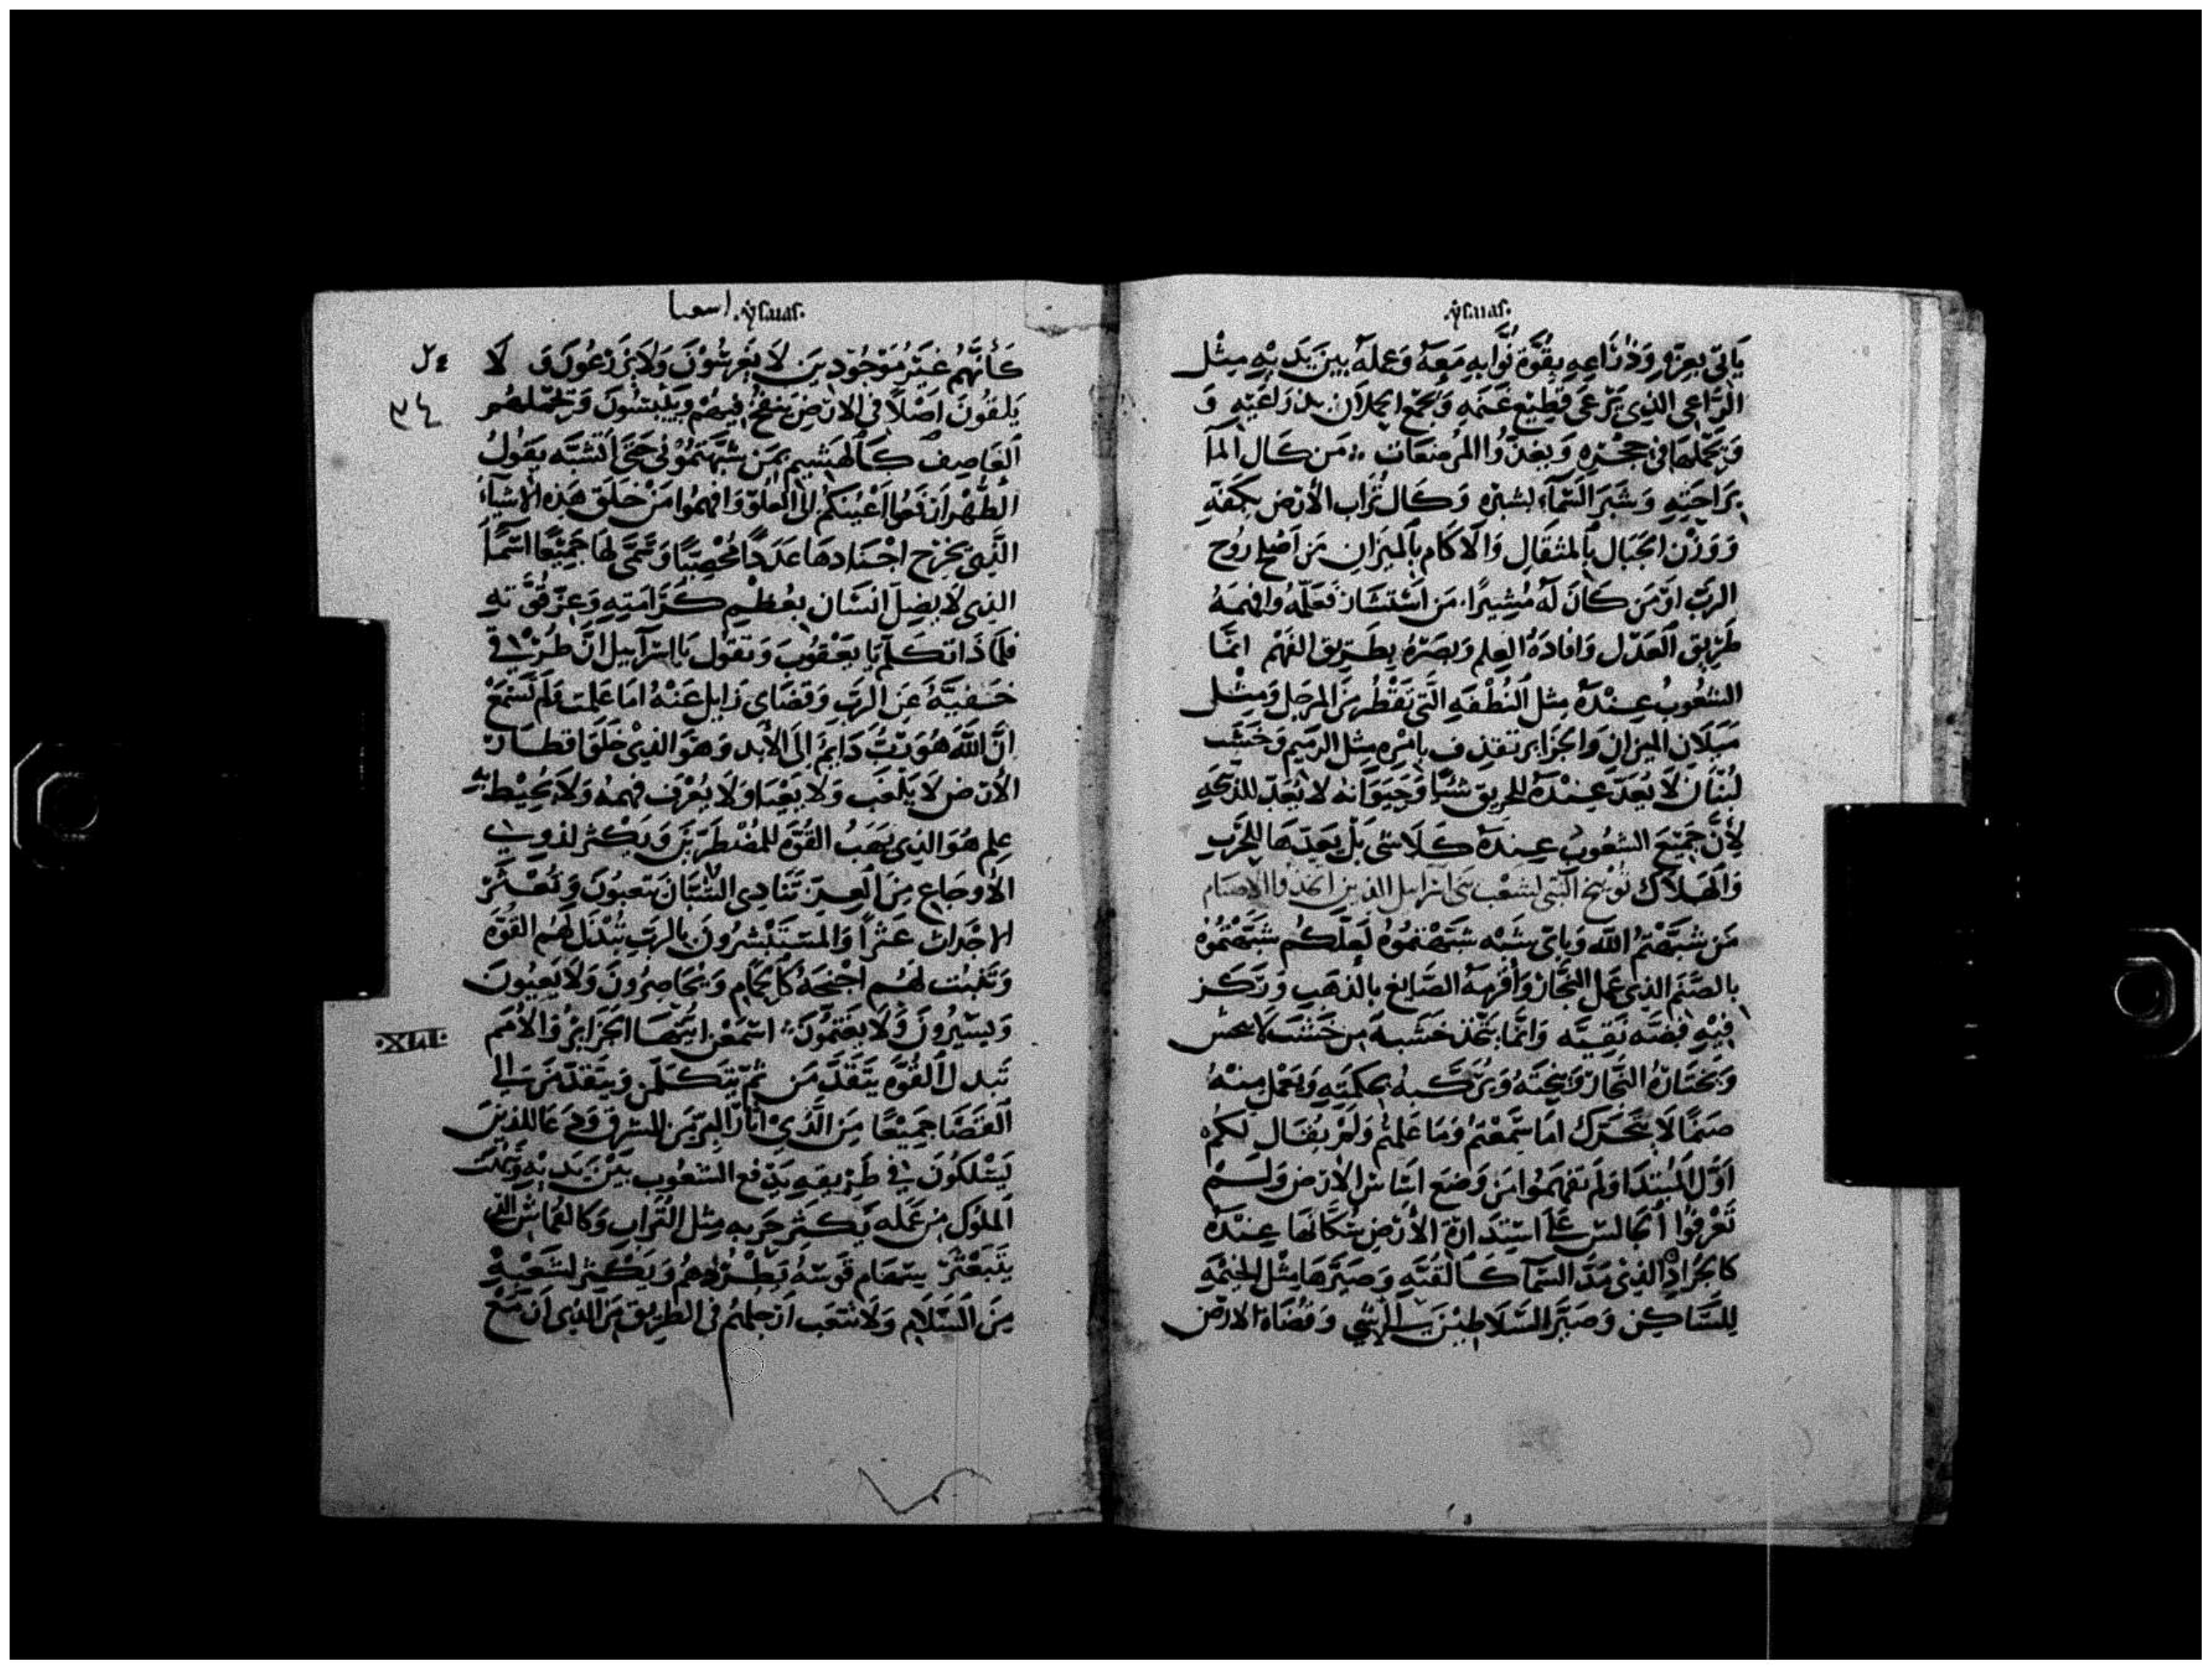 .ysaias.
يَاتي بعِزّهِ وَذِرَاعِهِ بِقُوَّة ثوَابِهِ مَعَهُ وَعَمَلَهُ بَينَ يَدَيْهِ مِثْل
الرَّاعِي الذِي يَرْعَى قطِيْعَ غَنَمِهِ وَيَجْمَع الحملَان بذرَاعَيْهِ وَ
وَيَحْمِلهَا فِي حِجْرِهِ وَيَغْذُوا المرْضِعَات مَن كَال المآ
برَاحَتِهِ وَشَبَرَ السَّمَآءَ بشبْرِهِ وَكَال تُرَاب الأرْض بكَفّهِ
وَوَزَنَ الجِبَال بالمثقَال وَالآكَام بالميْزَان مَن أصْلح رُوح
الرَبّ اوْ مَن كَانَ لَهُ مُشِيرًا مَن اسْتشَارَ فَعَلّمَهُ وَافهَمَهُ
طَرِيق العَدْل وَافادَهُ العِلم وَبَصّرَهُ بِطَرِيق الفَهْم انمَّا
الشعُوب عِنْدَهُ مِثل النُطفَهِ التي تقْطُر مِن المرجَل وَمِثْل
مَيَلَان الميزان وَالجَزَاير تقذف بامْرِهِ مِثل الرميم وَخَشب
لُبْنَان لَا يُعَدّ عِندَهُ للحَرِيق شَيًا وَحَيَوَانه لَا يُعَدّ للذبَحهِ
لأَنَّ جَمِيْعَ الشعُوب عِندَهُ كَلَا شى بَلْ يَعَدّهَا للحَرْب
وَالهَلَاك توْبيخ النبي لشَعْب بَني اسرَاييل الذين اتخذوا الاصنام
مَن شَبَّهْتمُ الله وَباىّ شَبَه شَبَّهْتمُوهُ لَعَلكُم شَبَّهْتمُوهُ
بالصَنَم الذِي عَمَل النجَّار وَاقرهَهُ الصَايغ بالذهَب وَرَكز
فِيْهِ فِضّه نَقِيَّه وَانمَّا يتّخذ خَشَبه مِن خَشَب لَا
وَيَخْتَارهُ النجَّار وَينحِتَهُ وَيرَكّبهُ بحِكمَتِهِ وَيَعْمَل مِنْهُ
صَنَمًا لَا يَتَحَرّك امَا سَمِعْتمُ وَمَا عَلِمْتمُ وَلمْ يُقَال لَكُم
اوّل المُبْتدَا وَلم تفهَمُوا مَن وَضَعَ اسَاس الارْض وَلَم
تَعْرفُوا الجَالس عَلى اسْتِدَارَة الأرْض سُكَّانهَا عِنْدَهُ
كَالجَرَادِ الذي مَدّ السَّمَآ كَالقُبَّهِ وَصَيّرَهَا مِثل الخيمَهِ
لِلسَّاكِن وَصَيَّر السّلَاطِيْن وَقضَاة الارْض
.ysaias. اسعيا
كَأنَّهُم غيْر مَوْجُوْدِيْن لَا يَغْرِسُوْنَ وَلَا يَزْرَعُونَ وَ لَا
يُلقُونَ اصْلًا فِي الارْض يَنفُخُ فِيهِمْ وَيَيْبَسُونَ وَتحْمِلهُم
العَاصِف كَالهَشِيم بمَن شَبّهْتمُوْني حَتى اتشَبّه يَقولُ
الطُهْر ارْفَعُوا اعْيُنكُم الَى العُلوّ وَافهَمُوا مَنْ خَلَق هَذِهِ الاشيَآ
الَّذِي يخرج اجْنَادهَا عَدَدًا مُحْصِيًا وَسَمَّى لهَا جَمِيْعًا اسْمَآ
الذِي لَا يضِلّ انسَان بعُظم كَرَامَتِهِ وَعِزّ قُوَّتهِ
فلمَاذَا تتكَلّم يَا يَعْقوُبَ وَتقول يَا اسْرَآييل انّ طُرُقي
خَفيّهٌ عَن الرَبّ وَقضَاي زايل عَنْهُ امَا عَلمت وَلم تَسْمَعْ
انَّ الله هُوَ رَبٌّ دَايم الَى الأبد وَهوَ الذِيْ خَلَقَ اقطَار
الأرْض لَا يَلغَب وَلَا يَعْيَا وَلَا يُعْرَف فهمهُ وَلَا يُحِيْط بهِ
عِلم هُوَ الذِي يَهَبُ القُوَّة للمضْطَرّيْنَ وَيَكثر لذَوِي
الأوجَاع مِن العِزّ تنَادِى الشُّبَّان يتعبُونَ وَتعْثُر
الاجْدَاث عَثْرًا وَالمسْتبْشِرُونَ بالرَبّ تتبَدَل لَهُم القوَّة
وَتنبُت لهُم اجنِحَهُ كَالحَمَام وَيحَاصِرُونَ وَلَا يَعيُونَ
وَيَسِيرُونَ وَلَا يغتمُّونَ اسْتمعْن ايَّتهَا الجَزَايرُ وَالأمَم
.XLI.
تَبدل القُوَّه يَتَقَدَّمَن ثمّ يَتكَلّمن وَيتقدّمَن الي
القَضَا جَمِيْعًا مِن الَّذِيْ اثَار البرّ من الشرق وَدَعَا للذينَ
يَسْلكُونَ فِي طَرِيقهِ يَدْفع الشعُوب بَيْن يَدَيْهِ وَيْبهت
الملُوك مِن عَمَله يَكثر حَرْبهِ مِثل التُرَاب وَكَالقماش الذِي
يتَبَعْثرَ بسِهَام قَوسهُ يَطْردهُم وَيَكثر لشعْبهِ
مِنَ السَّلَام وَلَا تتعَب ارْجلهُم فى الطرِيق مَن الذِى ارَ صنع